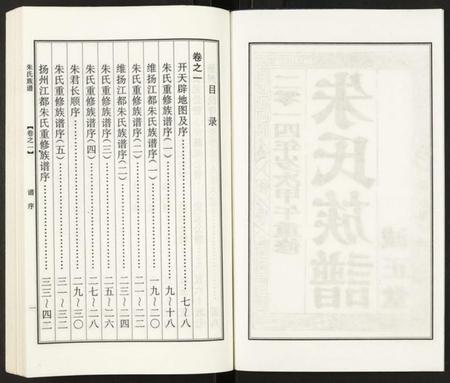 目录
卷之一
开天辟地图及序……七~八
朱氏重修族谱序(一)……九~十八
维扬江都朱氏族谱序(一)……一九~二〇
朱氏重修族谱序(二)……二一~二二
维扬江都朱氏族谱序(二)……二三~二四
朱氏重修族谱序(三)……二五~二六
朱氏重修族谱序(四)……二七~二八
朱君长顺序……二九~三〇
朱氏重修族谱序(五)……三一~三二
扬州江都朱氏重修族谱序……三三~四二
朱氏族谱
【卷之一】
谱序
一
朱氏族谱
二零一四年岁次甲午重修